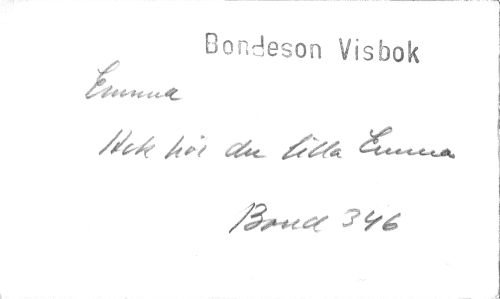 Bondeson Visbok
Emma
Ack hör du lilla Emma
Bond 346